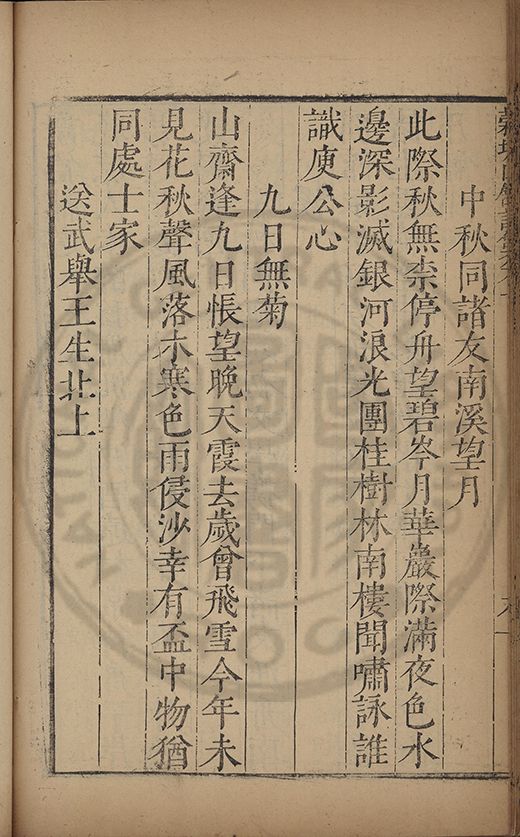 中秋同諸友南溪望月
此際秋無柰停舟望碧岑月華巖際滿夜色水
邊深影滅銀河浪光團桂樹林南樓聞嘯詠誰
識庾公心
九日無菊
山齋逢九日悵望晚天霞去歲曾飛雪今年未
見花秋聲風落木寒色雨侵沙幸有盃中物猶
同處士家
送武舉王生北上